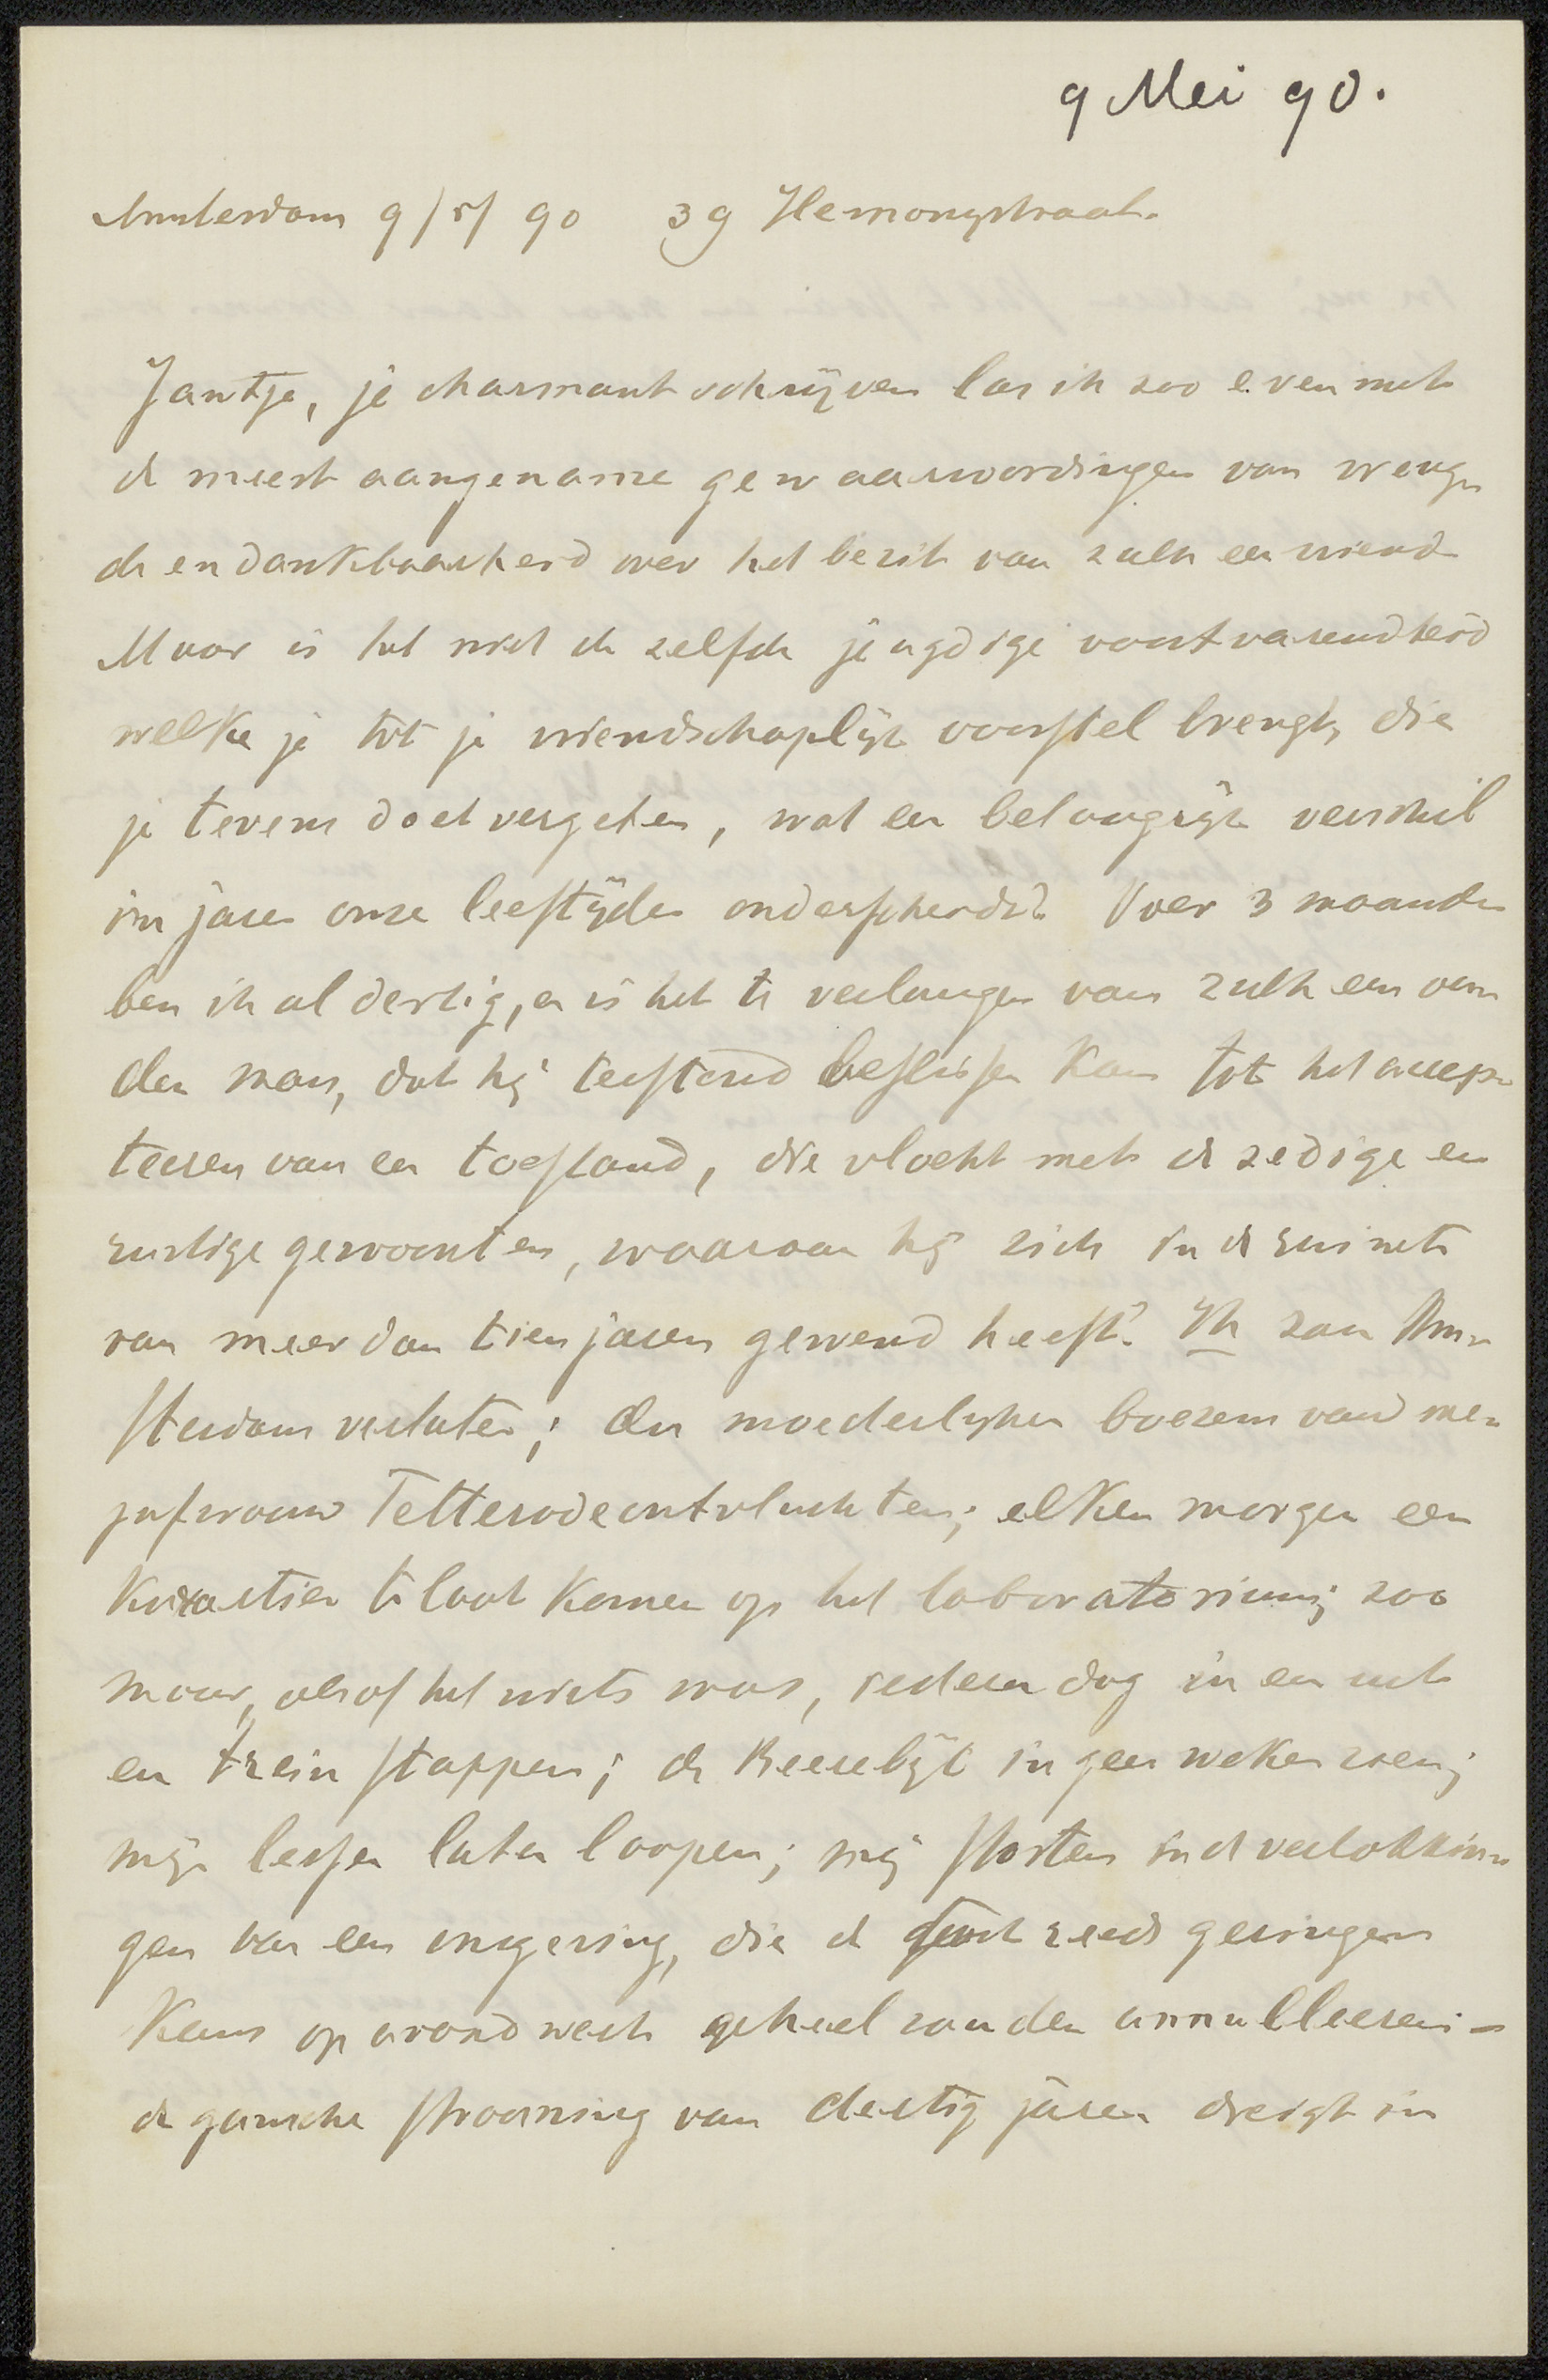 9 Mei 90.
Amsterdam 9/5/90 39 Hemonystraat.
Jantje, je charmant schrijven las ik zoo even met
de meest aangename gewaarwordingen van vreug-
de en dankbaarheid over het bezit van zulk een vriend
Maar is het niet de zelfde jeugdige voortvarendheid
welke je tot je vriendschaplijk voorstel brengt, die
je tevens doet vergeten, wat een belangrijk verschil
in jaren onze leeftijden onderscheidt? Over 3 maanden
ben ik al dertig, en is het te verlangen van zulk een ou-
den man, dat hij terstond beslissen kan tot het accep-
teeren van een toestand, die vloekt met de zedige en
rustige gewoonten, waaraan hij zich in de ruimte
van meer dan tien jaren gewend heeft? Ik zou Am-
sterdam verlaten; den moederlijken boezem van me-
jufvrouw Tetterode ontvluchten; elken morgen een
kwartier te laat komen op het laboratorium; zoo
maar, alsof het niets was, iederen dag in en uit
en trein stappen; de Beerebijt in geen weken zien;
mijn lessen laten loopen; mij storten in de verlokkin-
gen van een omgeving, die de reeds geringen
kans op avondwerk geheel zouden annulleeren; -
de gansche strooming van dertig jaren dreigt in